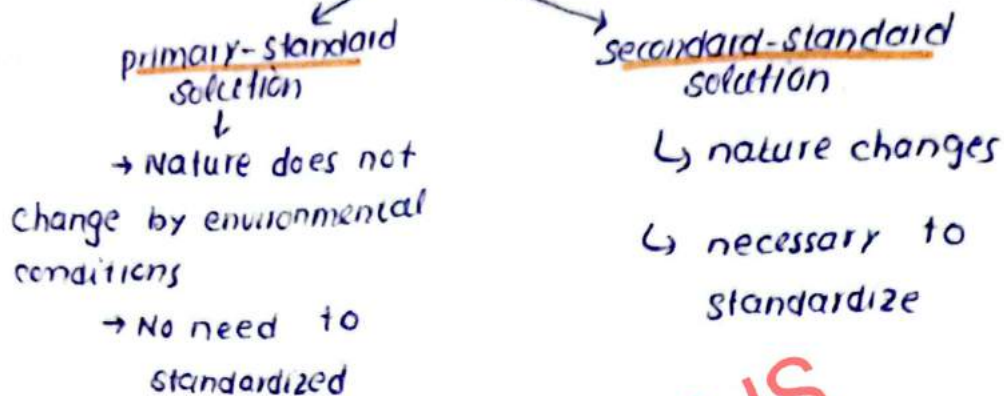 primary-standard
solution
→ Nature does not
change by environmental
conditions
→ No need to
standardized
secondard-standard
solution
↳ nature changes
↳ necessary to
standardize